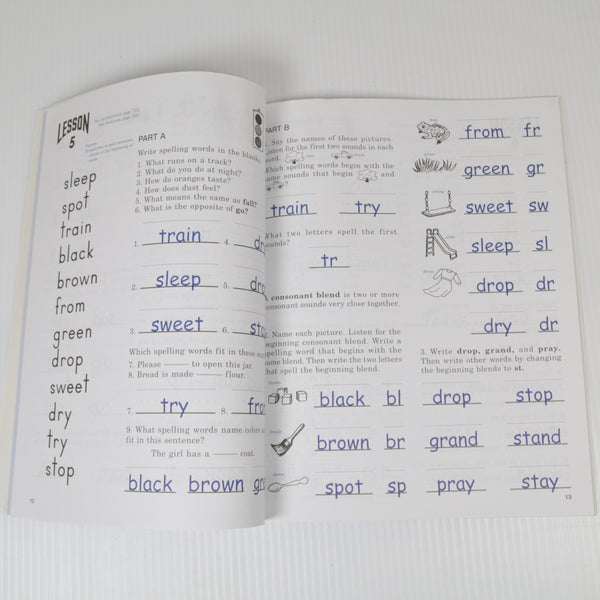 LESSON
5
sleep
spot
train
black
brown
from
green
drop
sweet
dry
try
stop
12
PART A
Write spelling words in the blanks.
1. What runs on a track?
2. What do you do at night?
3. How do oranges taste?
4. How does dust feel?
5. What means the same as fall?
6. What is the opposite of go?
1. train 4.
2. sleep 5.
3. sweet 6.
Which spelling words fit in these
7. Please ___ to open this jar.
8. Bread is made ___ flour.
7. try 8.
9. What spelling words name colors
fit in this sentence?
The girl has a ___ coat.
black brown
PART B
1. Say the names of these pictures.
Listen for the first two sounds in each
word.
Which spelling words begin with the
same sounds that begin and
train try
What two letters spell the first
sounds?
tr
A consonant blend is two or more
consonant sounds very close together.
2. Name each picture. Listen for the
beginning consonant blend. Write a
spelling word that begins with the
same blend. Then write the two letters
that spell the beginning blend.
black bl
brown br
spot sp
from fr
green gr
sweet sw
sleep sl
drop dr
dry dr
3. Write drop, grand, and pray.
Then write other words by changing
the beginning blends to st.
drop stop
grand stand
pray stay
13